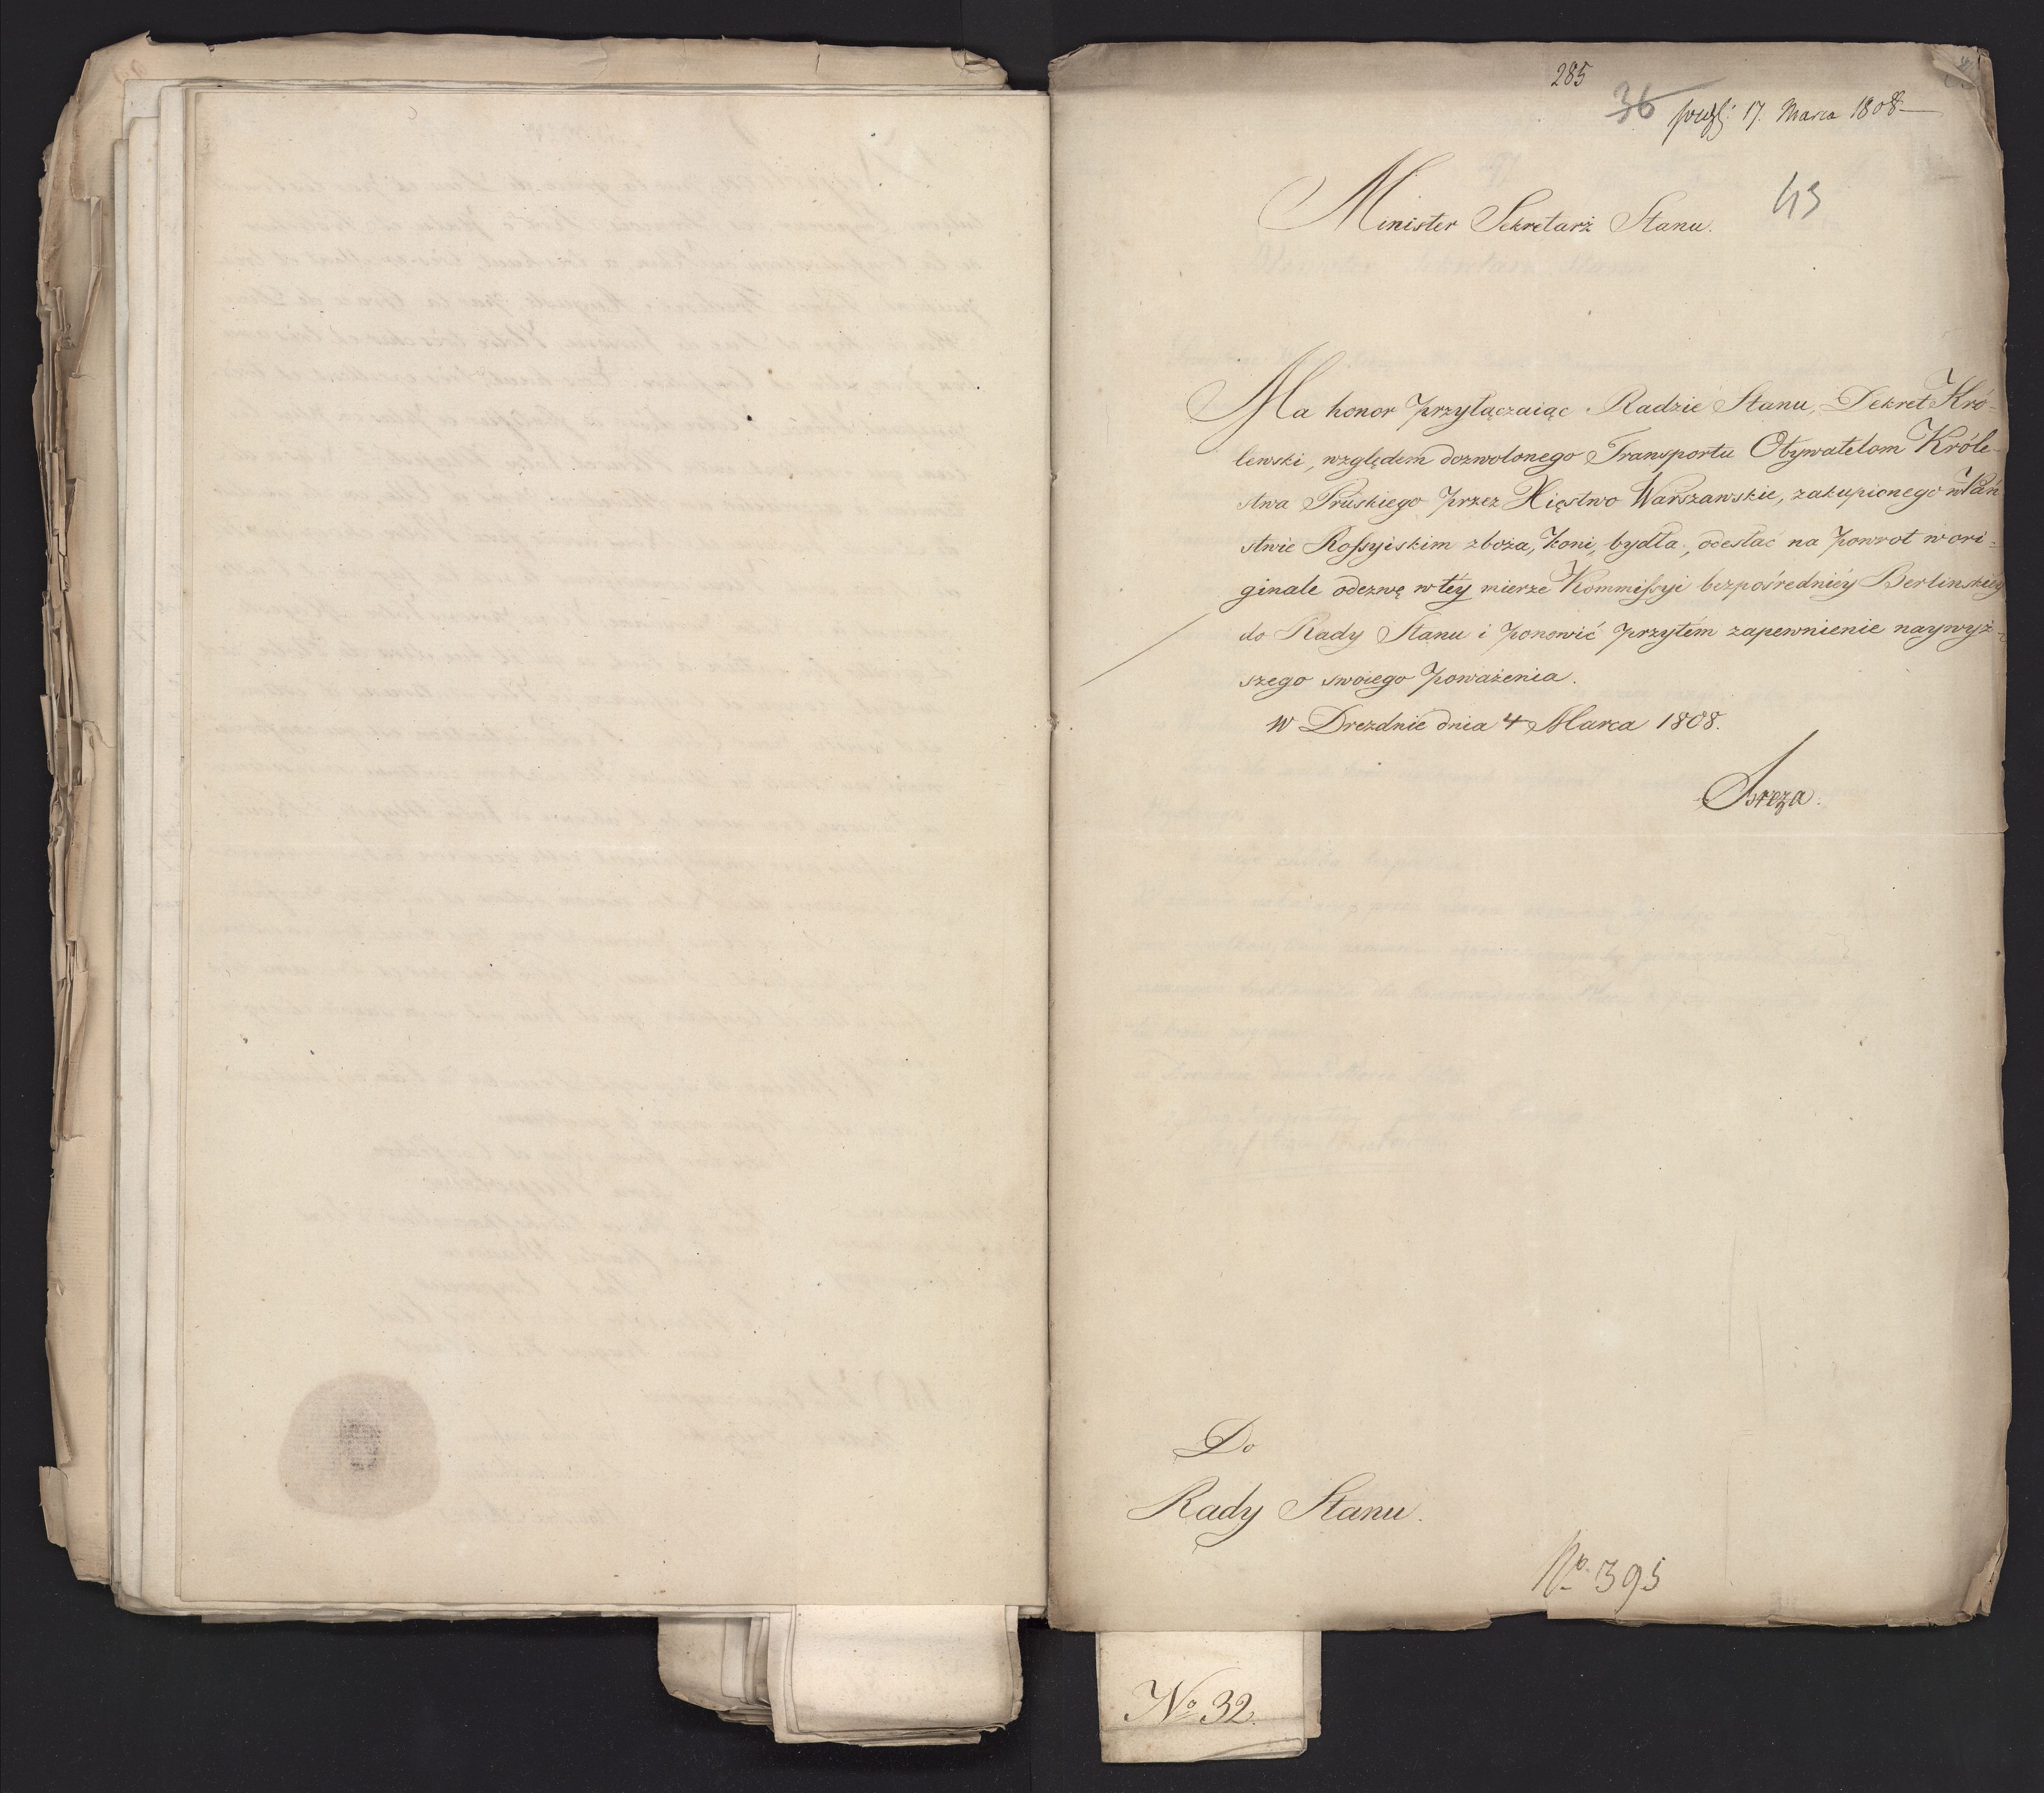 285
36
17. Marca 1808
43
Minister Sekretarz Stanu.
Ma honor przyłączaiąc Radzie Stanu, Dekret Kró-
lewski, względem dozwolonego Transportu Obywatelom Króle-
stwa Pruskiego przez Xięstwo Warszawskie, zakupionego w Pań
stwie Rossyiskim zboża, koni, bydła, odesłać na powrot w ori-
ginale odezwę w téy mierze Kommissyi bezpośrednićy Berlinskiéy
do Rady Stanu i ponowić przytém zapewnienie naywyż-
szego swoiego poważenia.
w Dreznie dnia 4 Marca 1808.
Breza.
Do
Rady Stanu.
No. 395
No 32.